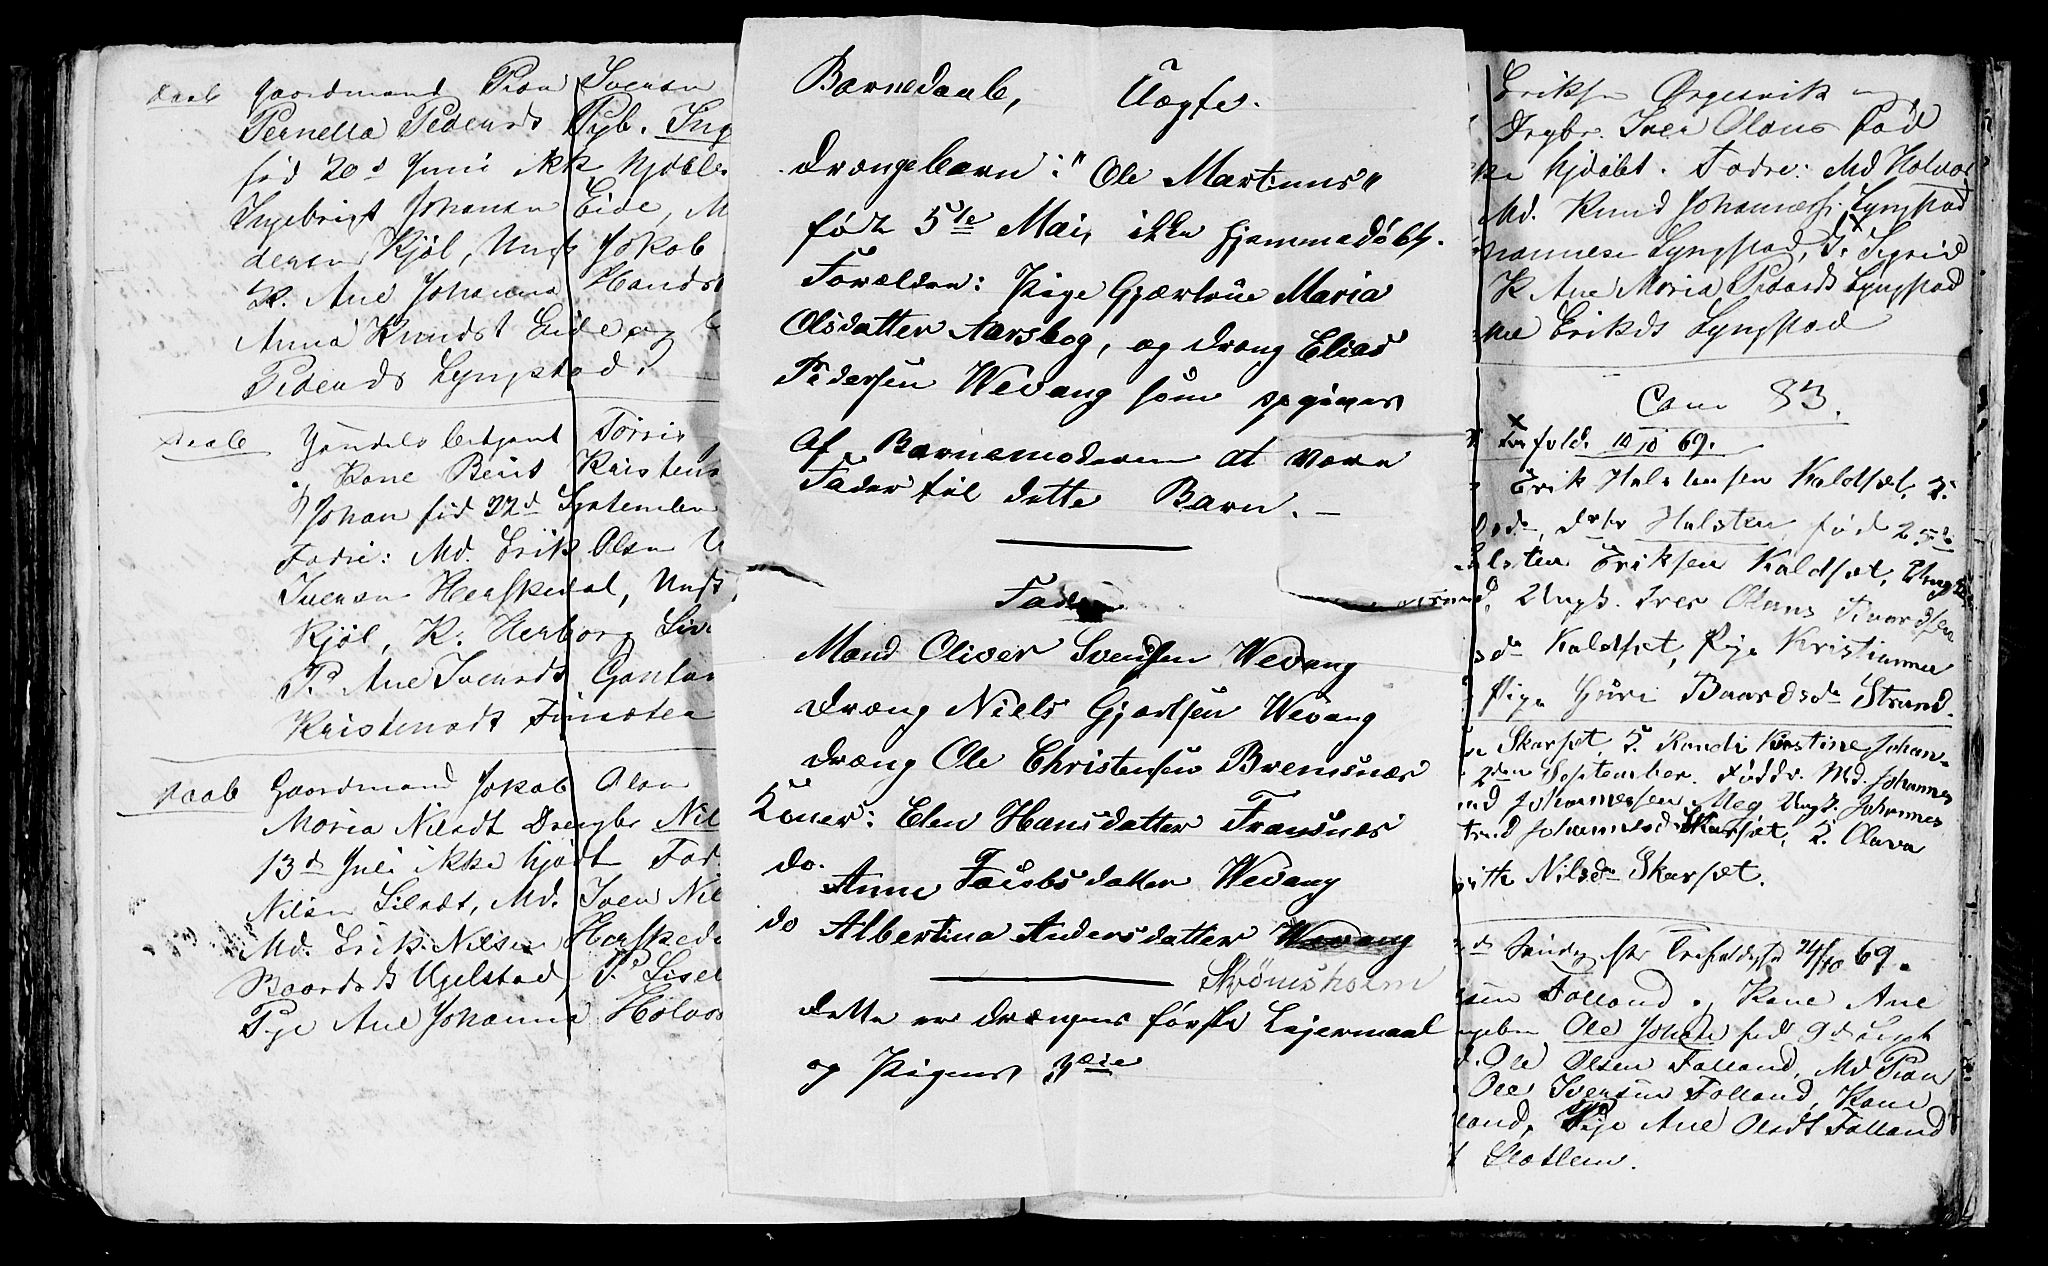 Daab Gaardmand Peder Iversen
Pernella Pedersdt Pgb. Ing
fød 20d Juni ikk hjdøbt
Ingebrigt Johansn Eide, M
dersen Kjøl, Ungk Jakob
K. Ane Johanna Hansdt
Anna Knudsdt Eide og
Pedersdt Lyngstad.
Daab
Kone Berit Kristens
Johan fød 22d September
Fadre: Md. Erik Olsen
Iversen Herskedal, Ungk.
Kjøl, K. Herborg Siv
P. Ane Iversdt
Kristensdt
Daab Gaardmand Jakob Olsen
Maria Nilsdt Drengb. Nil
13d Juli ikke hjdøbt Fad
Nilsen Silsæt, Md. Iver Nil
Md. Erik Nilsen Herskeda
Baardsdt Ugelstad, P. Lisel
Pge Ane Johanna Holvor
Barnedaab, Uægte.
Drængebarn: "Ole Martinus"
født 5te Mai, ikke hjemmedøbt.
Forældre: Pige Gjærtrue Maria
Olsdatter Aarsbog, og dræng Elias
Pedersen Wevang som opgives
af Barnemoderen at være
Fader til dette Barn. —
Faddere
Mand Oliver Svendsen Wevang
dræng Niels Gjertsen Wevang
dræng Ole Christensen Bremsnæs
Koner: Elen Hansdatter Fransnæs
do. Anne Jacobsdatter Wevang
do Albertina Andersdatter Wevang
Strømsholm
dette er drængens første Lejermaal
og Pigens 3die
Eriksen Ørgesvik og
Drgbr. Iver Olaus fød
ke hjdøbt. Fadre: Md Halvor
Md. Knud Johanness. Lyngstad
hannesen Lyngstad, P. Sigrid
K Ane Maria Pedersdt Lyngstad
ne Eriksdt Lyngstad
Cam 83.
Trefold. 10/10 69.
Erik Halstensen Kaldset,
Halsten, fød 25de
alsten Eriksen Kaldset, Ungk.
Ungk. Iver Olaus Baardsen
sdr Kaldset, Pige Kristianne
Pige Guri Baardsdr Strand.
Skarset, P. Randi Kirstine Johan-
2den September. Faddr. Md. Johannes
nd Johannessen Meg Ungk. Johannes
trud Johannesd Skarset, P. Olava
gitte Nilsdr Skarset.
Søndg efter Trefoldighed 24/10 69.
sen Folland og Kone Ane
ngebn Ole Johan fød 9d Sept
d. Ole Olsen Folland, Md Peder
Ole Iversen Folland, Kone
land, Pige Ane Olsdt Folland
Slatlem.